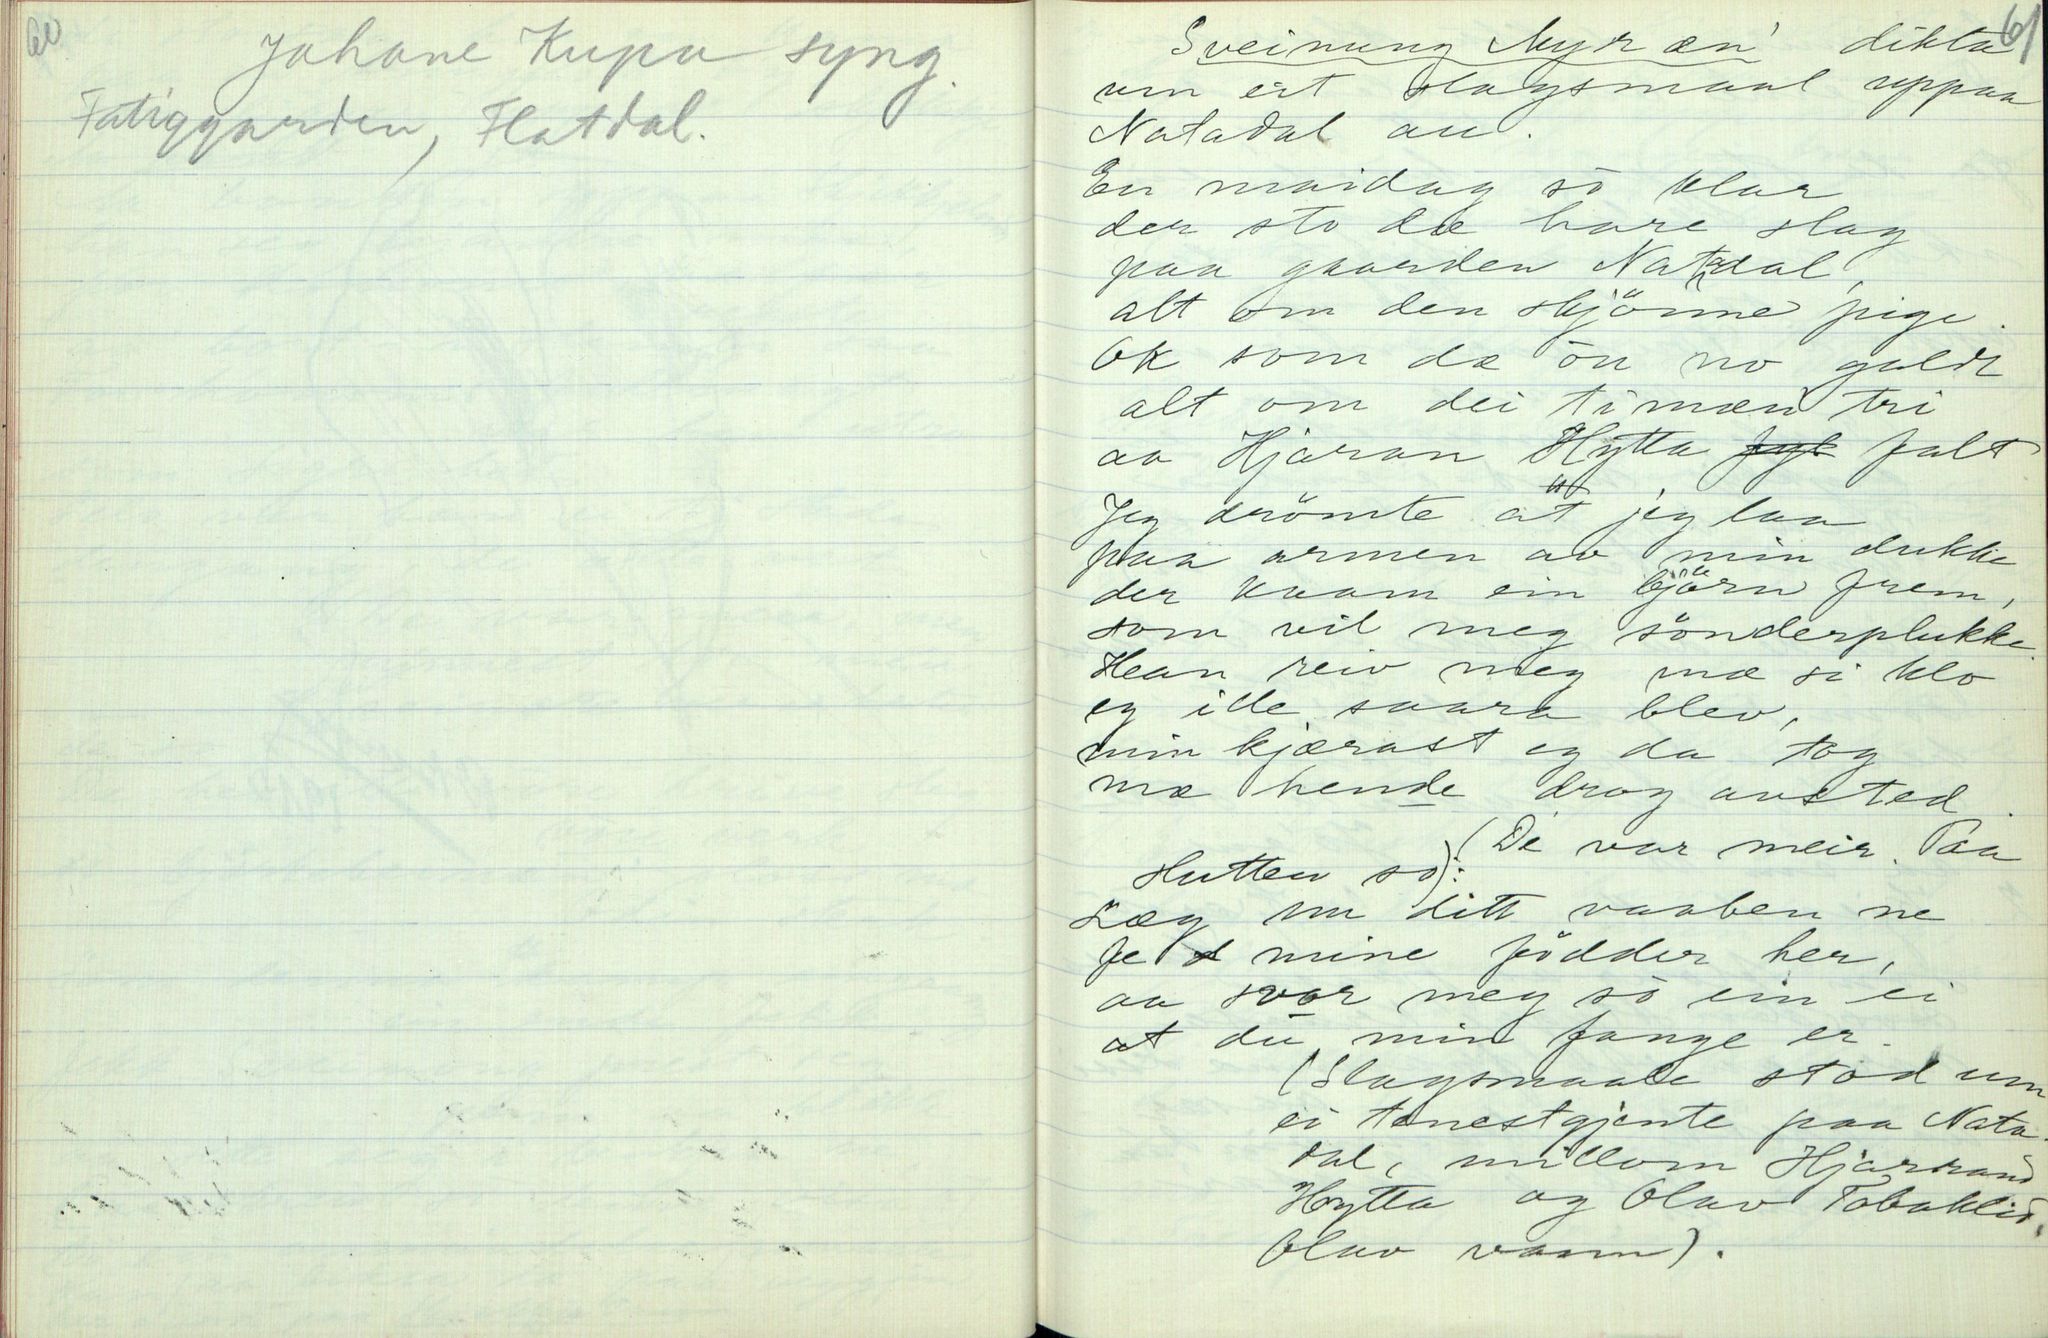 60
Johane Kupa syng.
Fatiggarden, Flatdal.
61
Sveinung Myræn' dikta
um eit slagsmaal uppaa
Natadal au.
En maidag så klar
der sto de hare slag
paa gaarden Natadal,
alt om den skjönne pige.
Ok som dæ ön no galdt
alt om dei timæn tri
aa Hjaran Hytta falt
Jeg drömte at jeg laa
paa armen av min dukke
der kaam ein björn frem,
som vil meg sönderplukke.
Hean reiv meg mæ si klo
eg ille saara blev,
min kjærast eg da tog
mæ hende drog avsted.
(De var meir. Paa
slutten so):
Læg nu ditt vaaben ne
fe mine födder her,
aa svor meg so ein ei
at du min fange er.
(Slagsmaale stod um
ei tenestgjente paa Nata-
dal, millom Hjarrand
Hytta og Olav Tobaklid.
Olav vann).